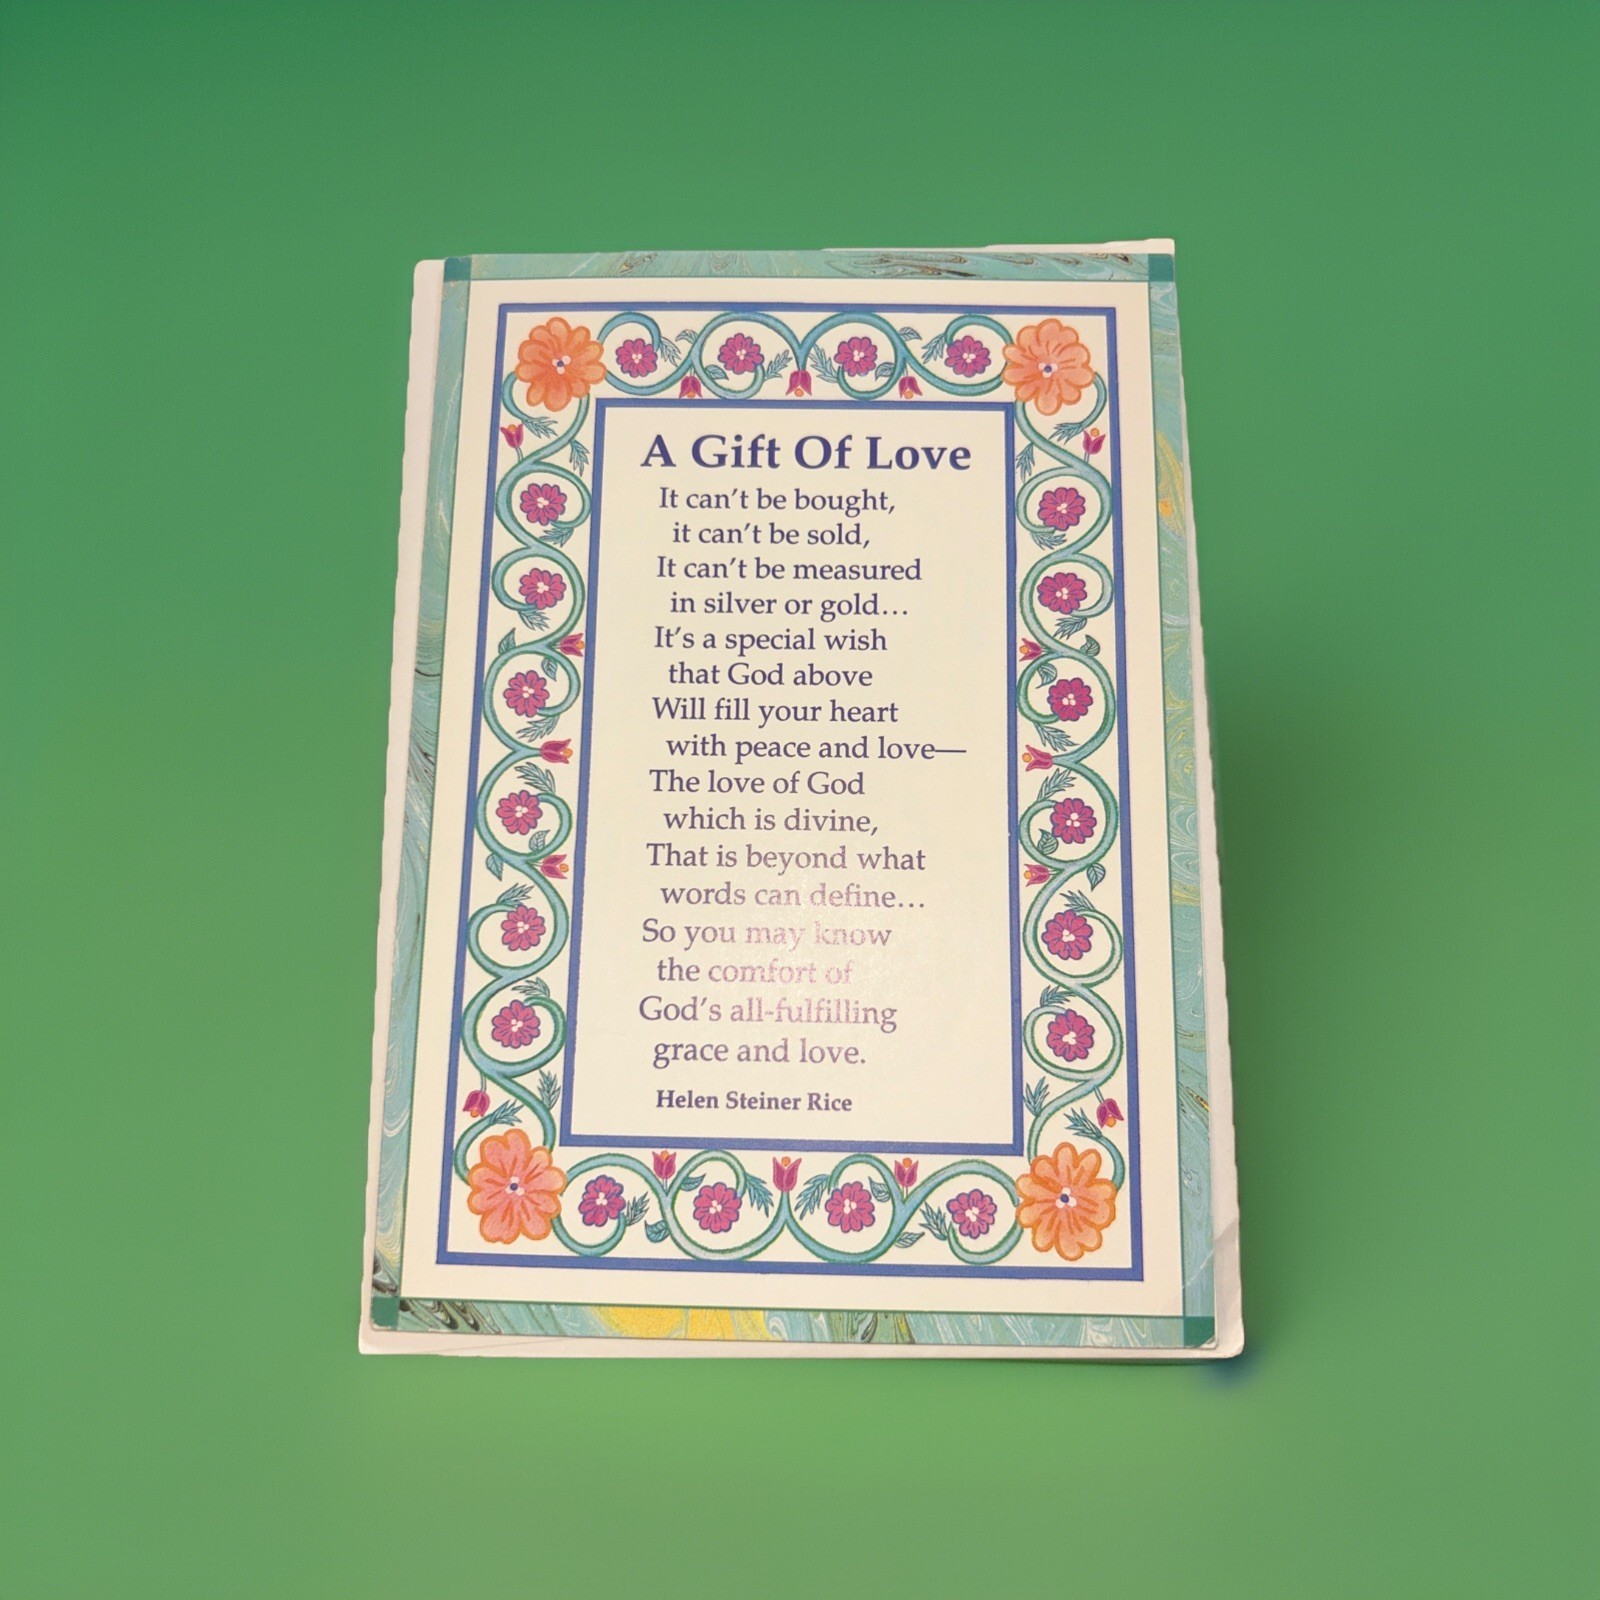 A Gift Of Love
It can't be bought,
it can't be sold,
It can't be measured
in silver or gold...
It's a special wish
that God above
Will fill your heart
with peace and love—
The love of God
which is divine,
That is beyond what
words can define...
So you may know
the comfort of
God's all-fulfilling
grace and love.
Helen Steiner Rice